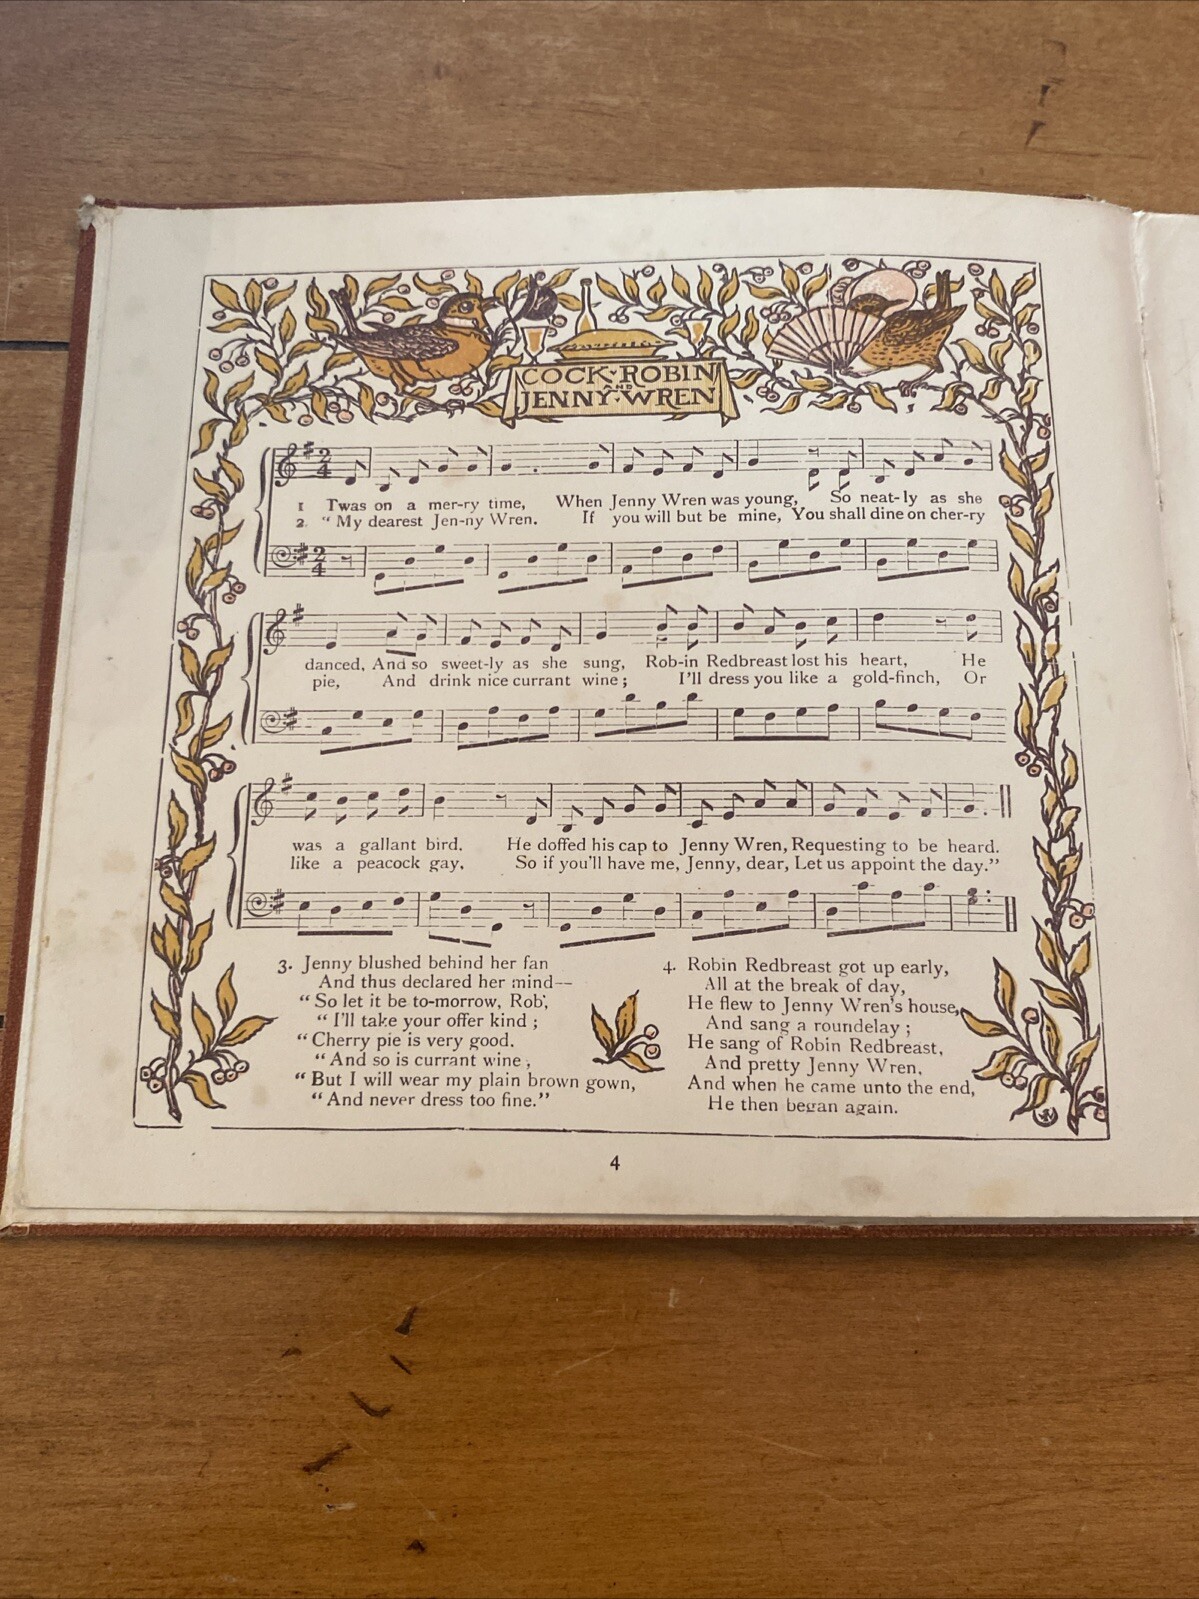 COCK·ROBIN
AND
JENNY·WREN
2
4
1 Twas on a mer-ry time, When Jenny Wren was young, So neat-ly as she
2. “ My dearest Jen-ny Wren. If you will but be mine, You shall dine on cher-ry
2
4
danced, And so sweet-ly as she sung, Rob-in Redbreast lost his heart, He
pie, And drink nice currant wine ; I'll dress you like a gold-finch, Or
was a gallant bird. He doffed his cap to Jenny Wren, Requesting to be heard.
like a peacock gay, So if you'll have me, Jenny, dear, Let us appoint the day.”
3. Jenny blushed behind her fan
And thus declared her mind—
“ So let it be to-morrow, Rob,
“ I'll take your offer kind ;
“ Cherry pie is very good.
“ And so is currant wine ,
“ But I will wear my plain brown gown,
“ And never dress too fine.”
4. Robin Redbreast got up early,
All at the break of day,
He flew to Jenny Wren's house,
And sang a roundelay ;
He sang of Robin Redbreast,
And pretty Jenny Wren,
And when he came unto the end,
He then began again.
4